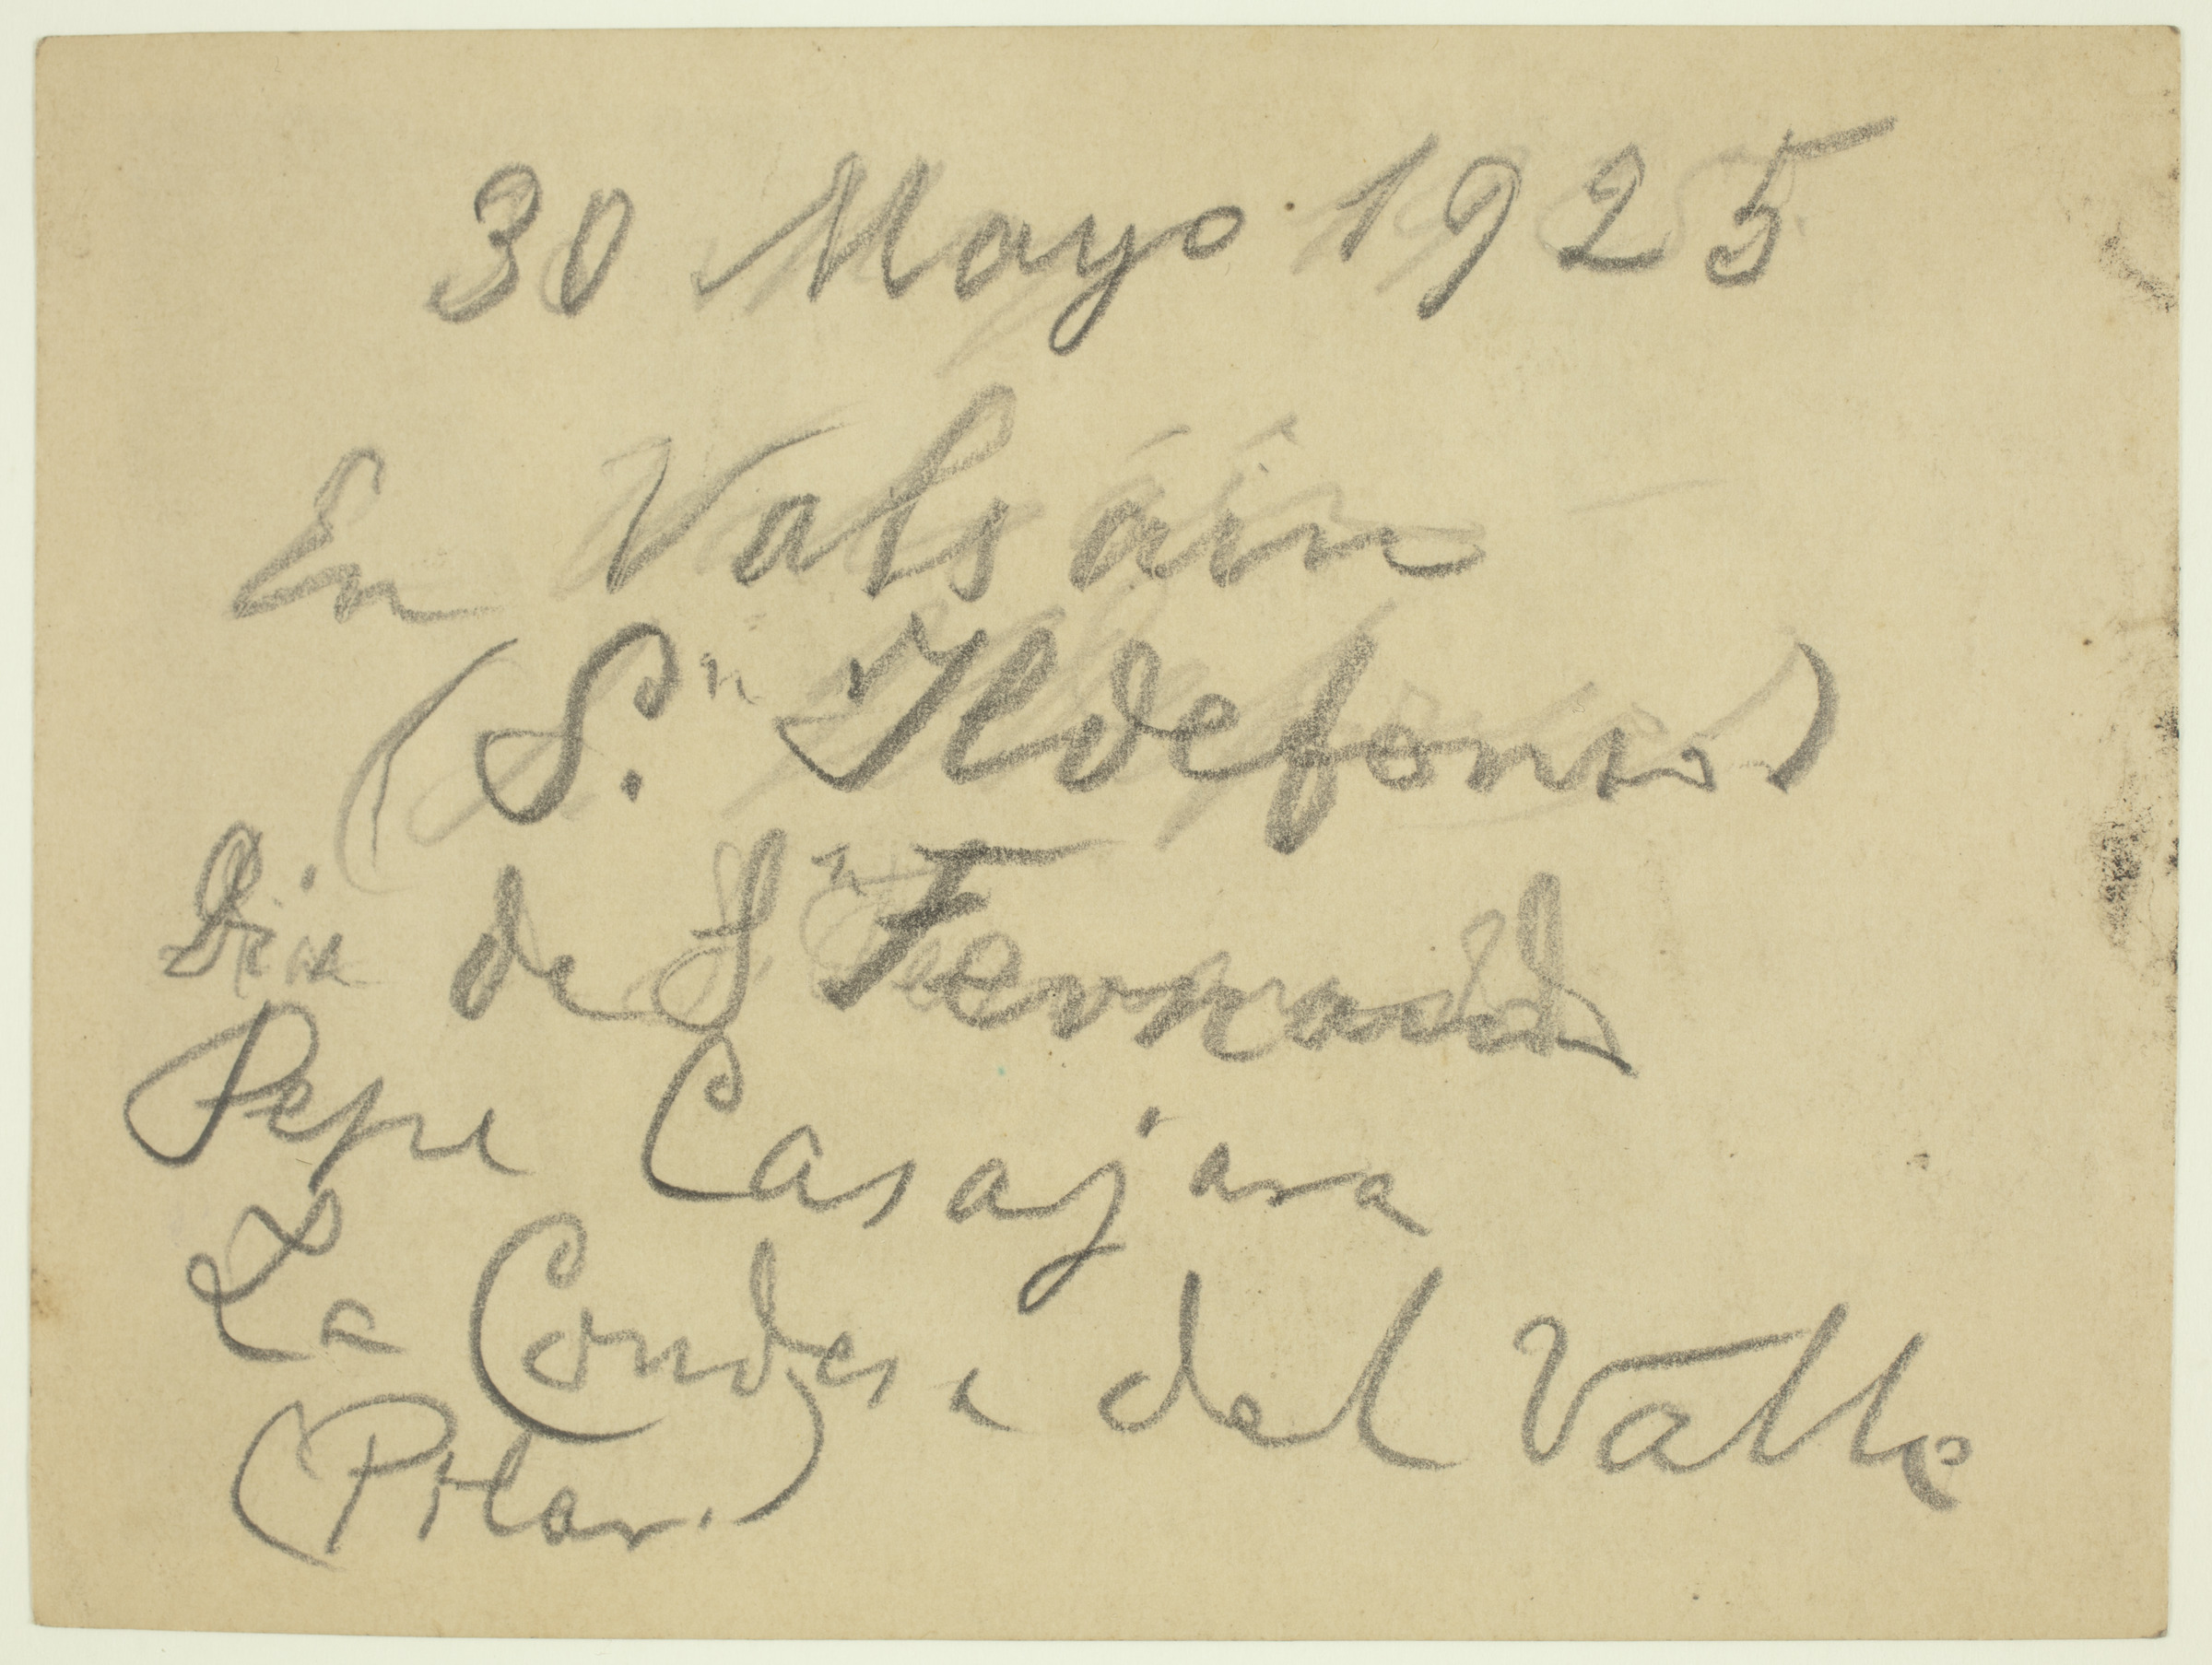 30 Mayo 1925
En Valsáin
(S.n Ildefonso)
Dia de S.n Fernando
Pepe Casajara
La Condesa del Valle
(Pilar.)